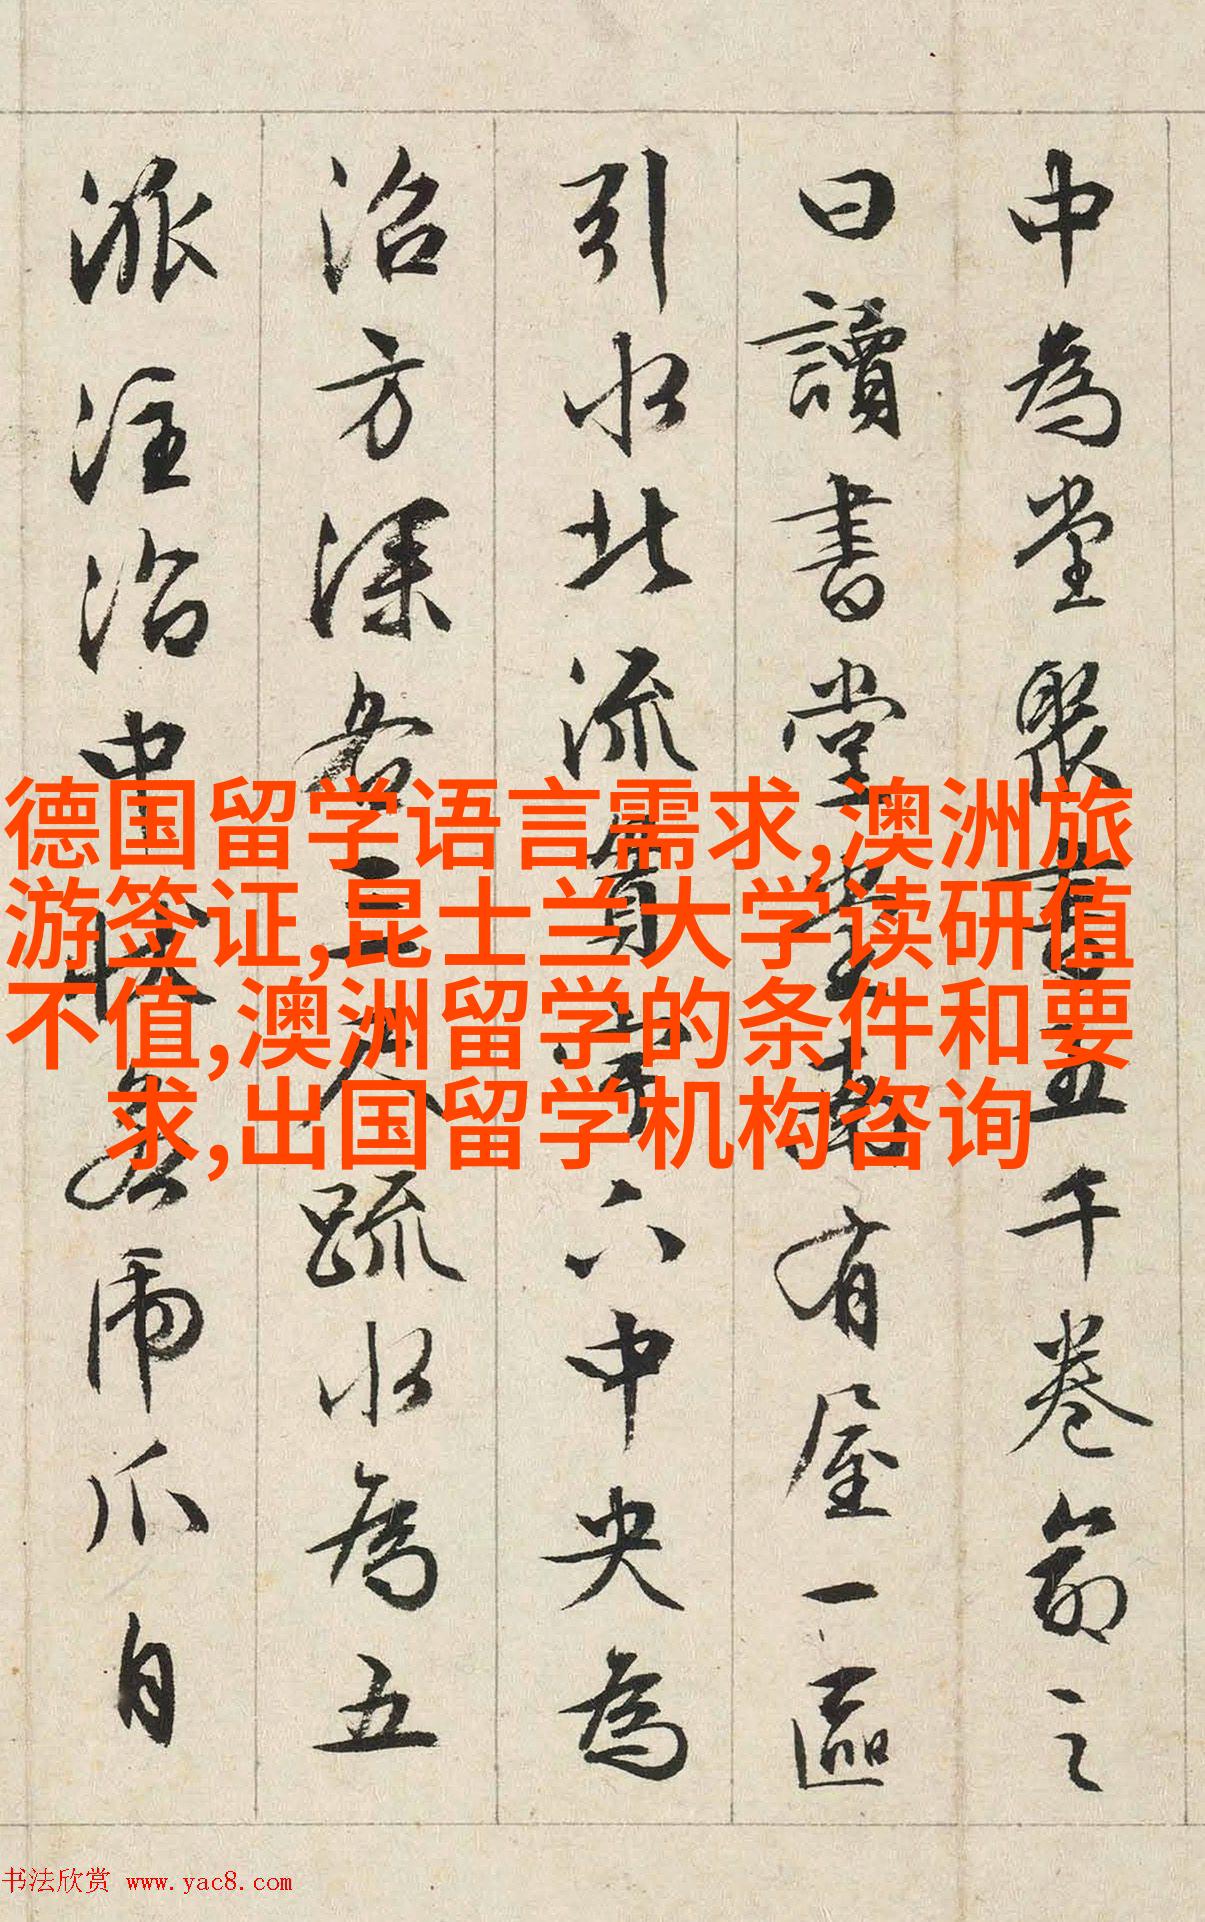 中為堂聚書五千卷命之
曰讀書堂堂南有屋一區
引水北流貫宇下中央為
沼方深各三尺疏水為五
派注沼中狀若虎爪自
德国留学语言需求,澳洲旅
游签证,昆士兰大学读研值
不值,澳洲留学的条件和要
求,出国留学机构咨询
书法欣赏 www.yac8.com